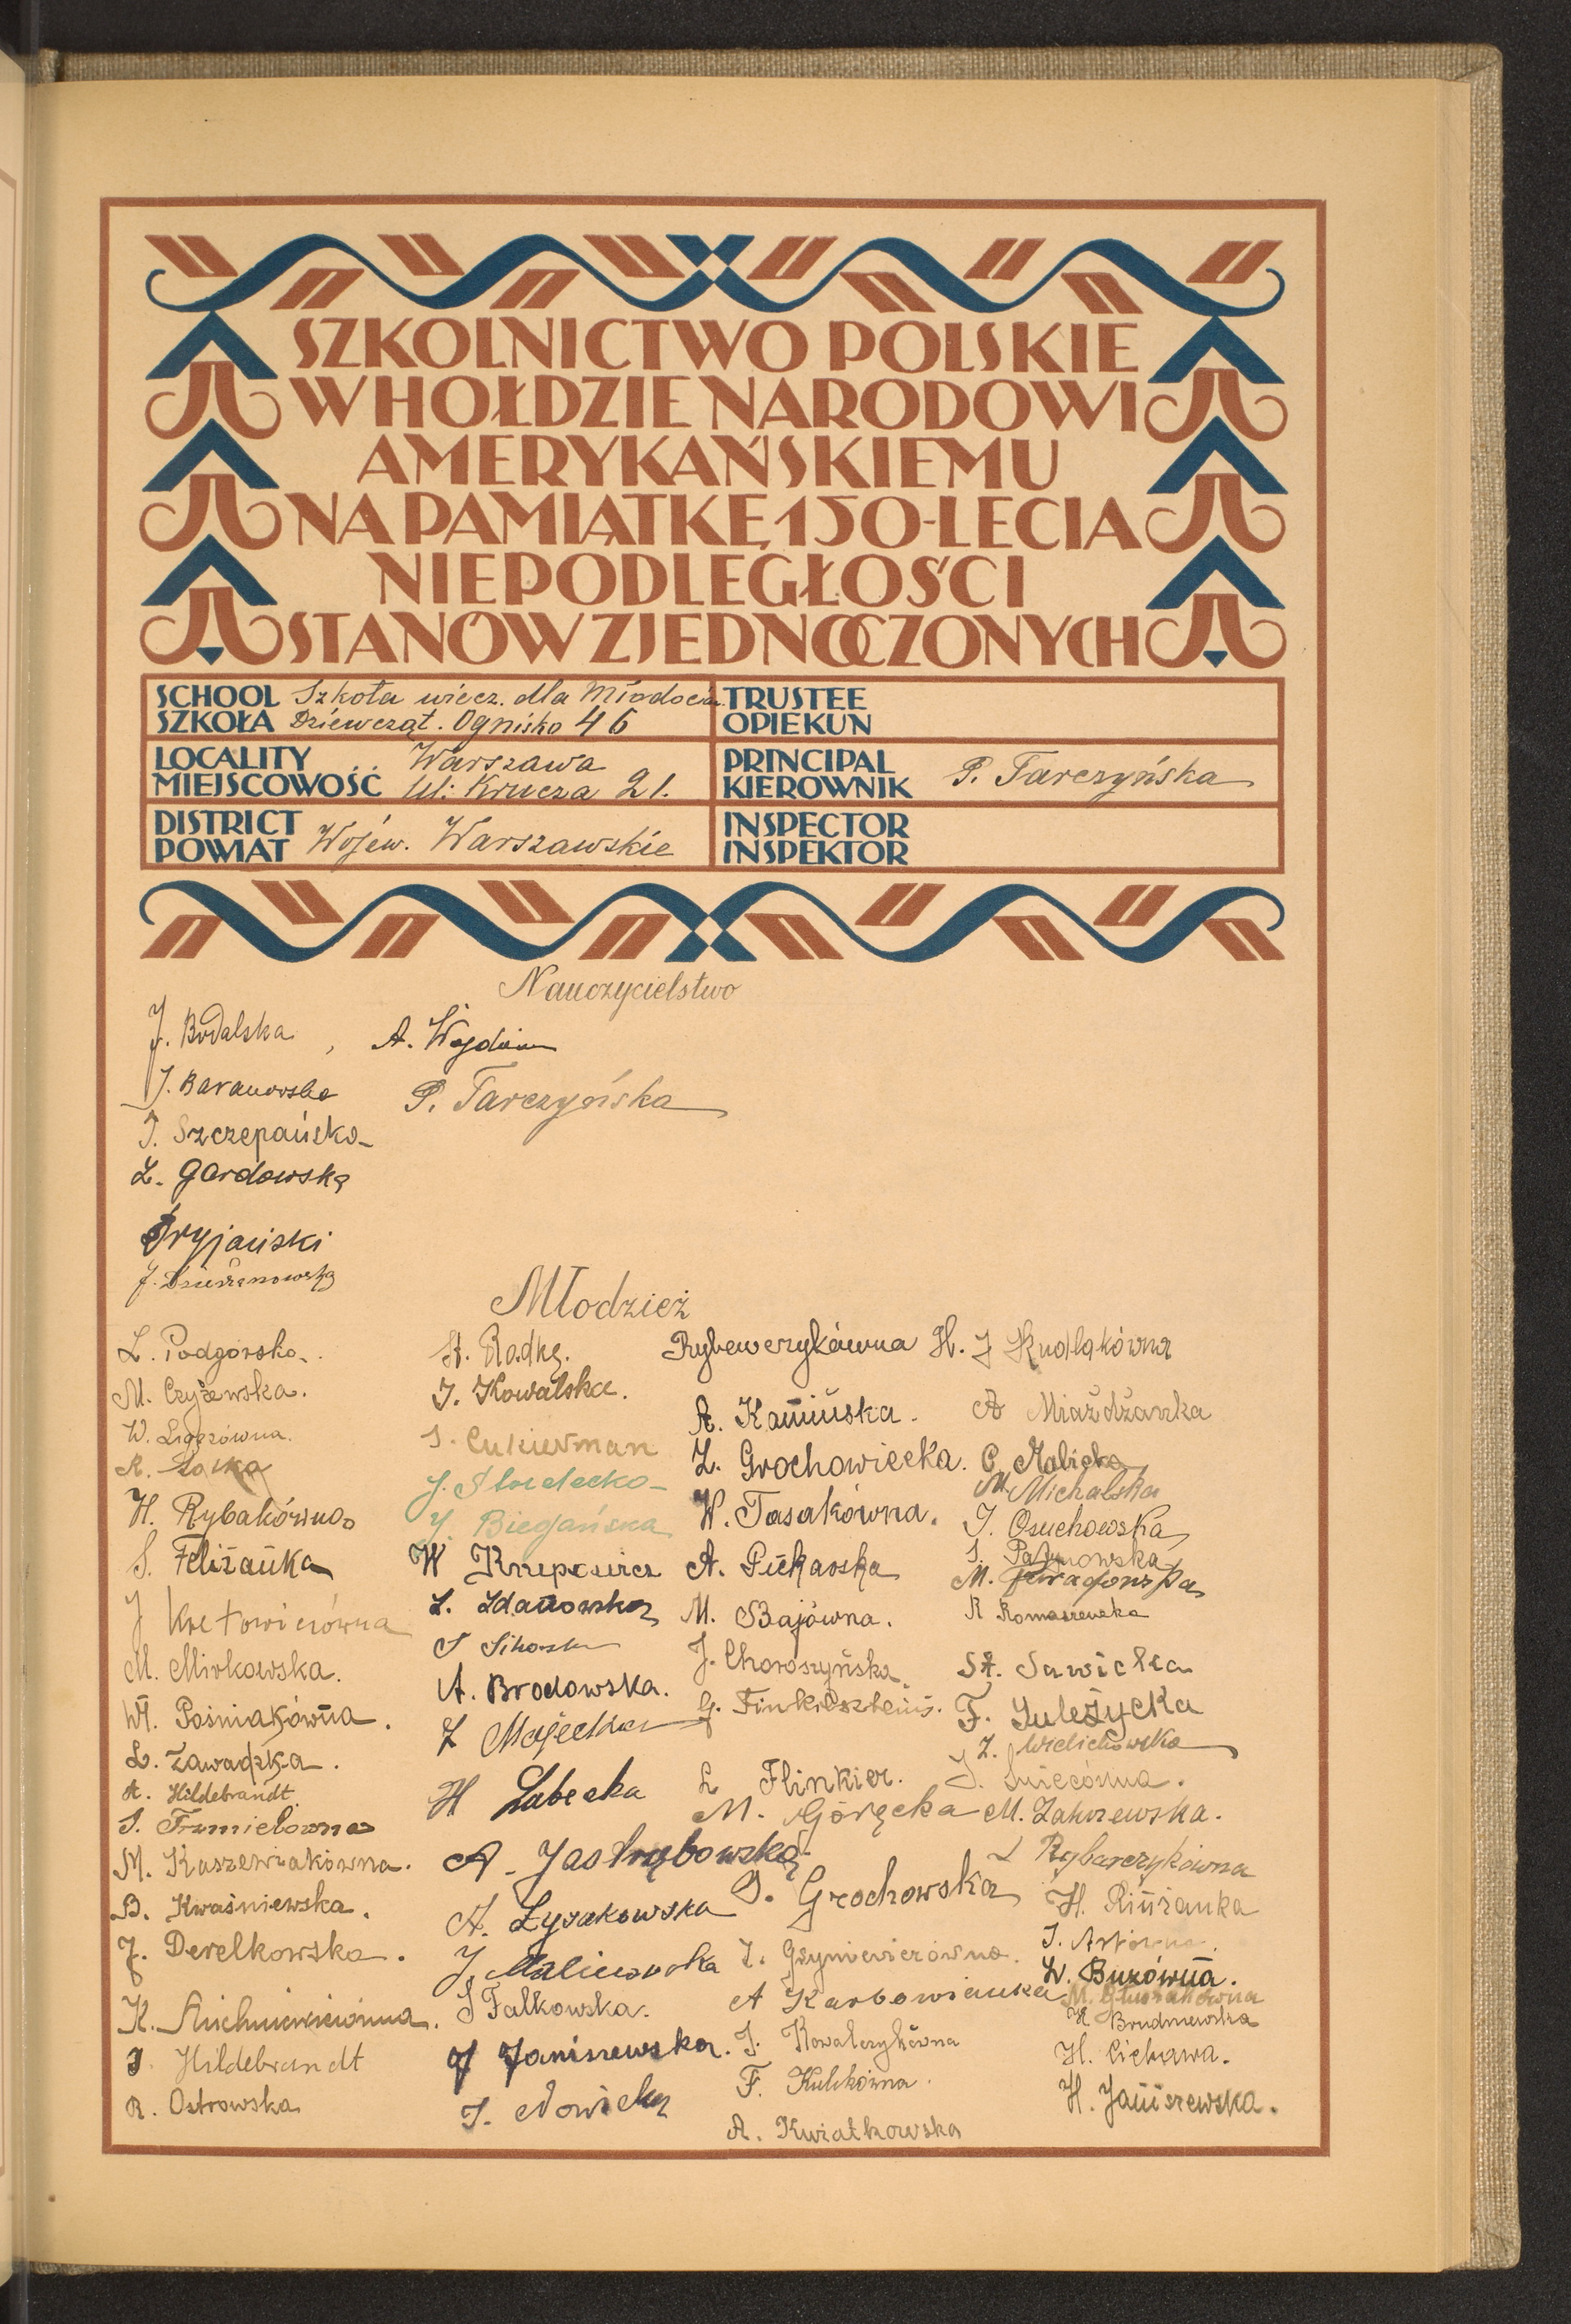 SZKOLNICTWO POLSKIE
W HOŁDZIE NARODOWI
AMERYKAŃSKIEMU
NA PAMIĄTKĘ 150-LECIA
NIEPODLEGŁOŚCI
STANÓW ZJEDNOCZONYCH
SCHOOL
SZKOŁA
Szkoła wiecz. dla Młodocian.
Dziewcząt. Ognisko 46
TRUSTEE
OPIEKUN
LOCALITY
MIEJSCOWOŚĆ
Warszawa
ul: Krucza 21.
PRINCIPAL
KIEROWNIK
P. Tarczyńska
DISTRICT
POWIAT
Wojew. Warszawskie
INSPECTOR
INSPEKTOR
Nauczycielstwo
J. Bodalska
J. Baranowska
J. Szczepańska
Z. Gardowska
J. Dzierżanowska
A.
P. Tarczyńska
Młodzież
L. Podgórska.
M. Czyżewska.
W. Ligęzówna.
H. Rybakówna
S. Feliżanka
J Kretowiczówna
M. Mirkowska.
Wł. Pośniakówna.
L. Zawadzka.
A. Hildebrandt.
M. Kaszewiakówna.
B. Kwaśniewska.
J. Derelkowska.
J. Hildebrandt
R. Ostrowska
St. Radke.
J. Kowalska.
S. Cukierman
J. Studecka
Y. Biegańska
W Krupowicz
L. Zdanowska
S Sikorska
A. Brodowska.
Z Majewska
H Łabęcka
A. Jastrzębowska
A. Łysakowska
J. Maliszewska
S Falkowska.
J Janiszewska.
J. Nowicka
Rybewczykówna H.
A. Kamińska.
Z. Grochowiecka.
W. Tasakówna.
A. Piekarska
M. Bajówna.
J. Choroszyńska
G. Finkielsztein.
L Flinkier.
M. Górecka
G. Grochowska
A Karbowianka
J. Kowalczykówna
F. Kulikówna.
A. Kwiatkowska
J Kudlakówna
A Miażdżanka
C. Malicka
M Michalska
J. Osuchowska
R Romaszewska
St. Sawicka
F. Sulężycka
Z. Wielichowska
M. Zakrzewska.
L Rybarczykówna
H. Rinżanka
W. Buzówna.
H Brudniewska
H. Cichawa.
H. Janiszewska.